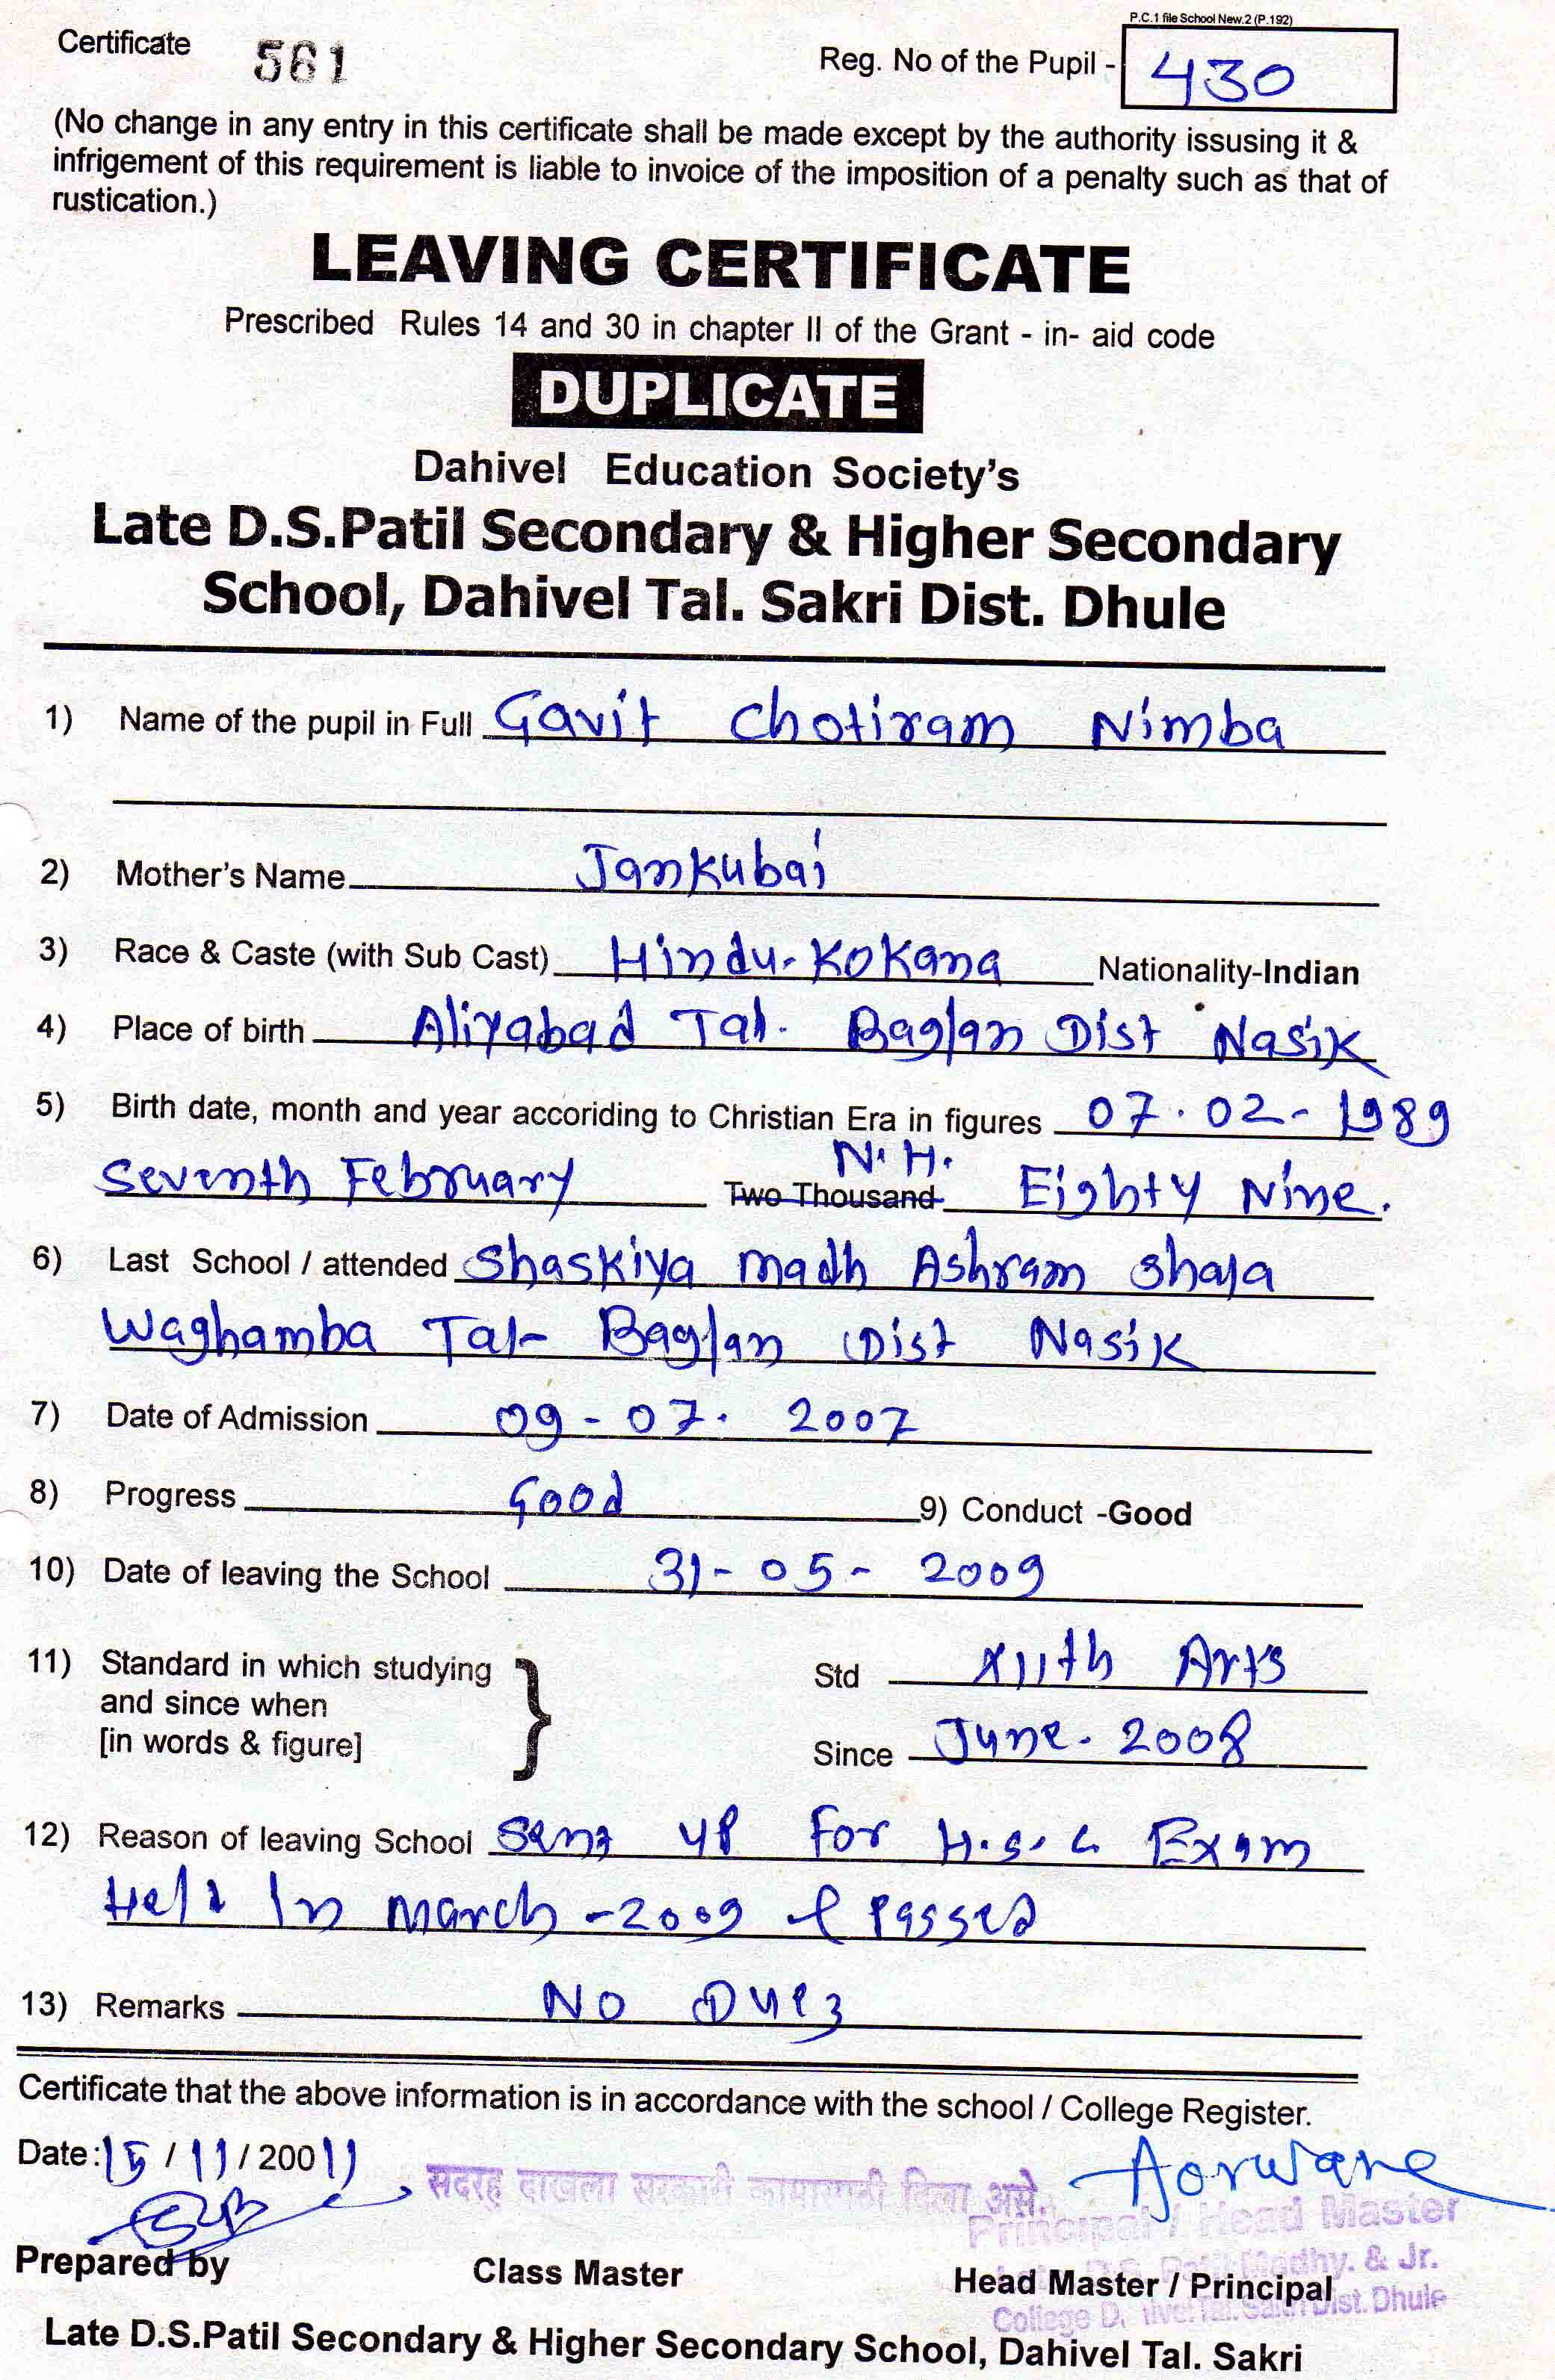 P.C.1 file School New.2 (P.192)
Certificate 561 Reg. No of the Pupil - 430
(No change in any entry in this certificate shall be made except by the authority issusing it &
infrigement of this requirement is liable to invoice of the imposition of a penalty such as that of
rustication.)
LEAVING CERTIFICATE
Prescribed Rules 14 and 30 in chapter II of the Grant - in- aid code
DUPLICATE
Dahivel Education Society's
Late D.S.Patil Secondary & Higher Secondary
School, Dahivel Tal. Sakri Dist. Dhule
1) Name of the pupil in Full Gavit Chotiram Nimba
2) Mother's Name Jankubai
3) Race & Caste (with Sub Cast) Hindu-Kokana Nationality-Indian
4) Place of birth Aliyabad Tal. Baglan Dist Nasik
5) Birth date, month and year accoriding to Christian Era in figures 07.02-1989
N.H.
Seventh February Two Thousand Eighty Nine.
6) Last School / attended Shaskiya madh Ashram shala
Waghamba Tal- Baglan Dist Nasik
7) Date of Admission 09-07.2007
8) Progress Good 9) Conduct -Good
10) Date of leaving the School 31-05-2009
11) Standard in which studying Std XIIth Arts
and since when
[in words & figure] Since June-2008
12) Reason of leaving School Sent up For H.S.C Exam
Held In March-2009 & Passed
13) Remarks No Dues
Certificate that the above information is in accordance with the school / College Register.
Date: 15/11/20011
सदरह दाखला सरकारी कामासाठी दिला असे.
Principal / Head Master
Prepared by Class Master Head Master / Principal
Late D.S.Patil Secondary & Higher Secondary School, Dahivel Tal. Sakri